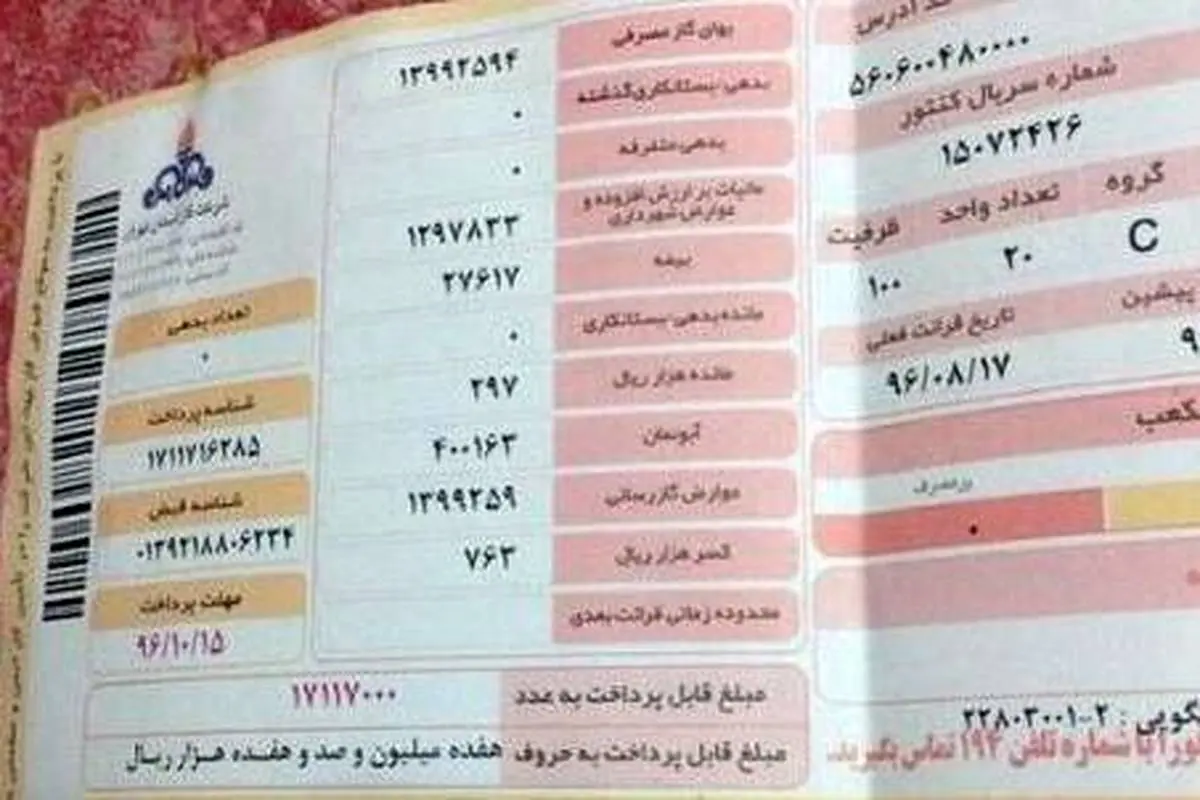 کد آدرس
۵۶۰۶۰۰۴۸۰۰۰۰
شماره سریال کنتور
۱۵۰۷۲۴۲۶
گروه تعداد واحد ظرفیت
C ۲۰ ۱۰۰
پیشین تاریخ قرائت فعلی
۹ ۹۶/۰۸/۱۷
پرمصرف
۰
۲۲۸۰۳۰۰۱-۲
با شماره تلفن ۱۹۴ تماس بگیرید.
بهای گاز مصرفی ۱۳۹۹۲۵۹۴
بدهی-بستانکاری گذشته ۰
بدهی متفرقه ۰
مالیات بر ارزش افزوده و
عوارض شهرداری ۱۲۹۷۸۳۳
بیمه ۲۷۶۱۷
مانده بدهی-بستانکاری ۰
مانده هزار ریال ۲۹۷
آبونمان ۴۰۰۱۶۳
عوارض گازرسانی ۱۳۹۹۲۵۹
کسر هزار ریال ۷۶۳
محدوده زمانی قرائت بعدی
شرکت گاز استان تهران
تعداد بدهی
۰
شناسه پرداخت
۱۷۱۱۷۱۶۲۸۵
شناسه قبض
۰۱۳۹۲۱۸۸۰۶۲۳۴
مهلت پرداخت
۹۶/۱۰/۱۵
مبلغ قابل پرداخت به عدد ۱۷۱۱۷۰۰۰
مبلغ قابل پرداخت به حروف هفده میلیون و صد و هفده هزار ریال